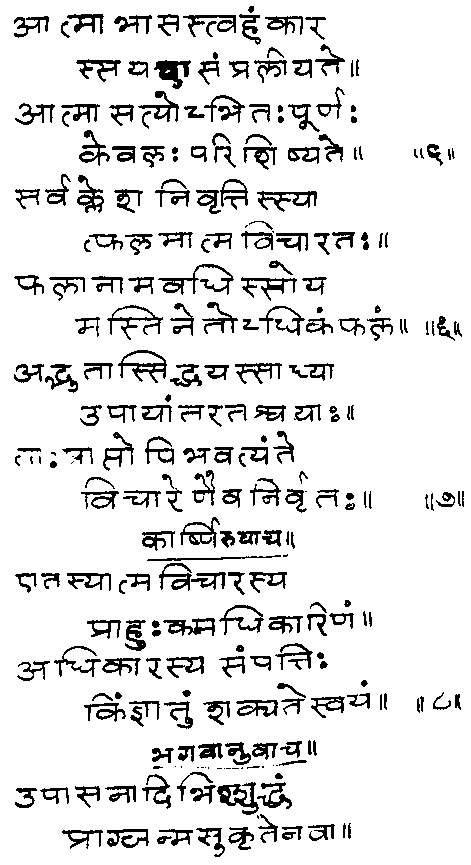 आत्माभासस्त्वहंकार
स्सयदा संप्रलीयते॥
आत्मासत्योऽभितःपूर्णः
केवलः परिशिष्यते॥ ॥५॥
सर्वक्लेश निवृत्तिस्स्या
त्फलमात्मविचारतः॥
फलानामवधिस्सोय
मस्तिनेतोऽधिकंफलं॥ ॥६॥
अद्भुतास्सिद्धयस्साध्या
उपायांतरतश्चयाः॥
ताःप्राप्तोपिभवत्यंते
विचारेणैवनिर्वृतः॥ ॥७॥
कार्ष्णिरुवाच॥
एतस्यात्मविचारस्य
प्राहुःकमधिकारिणं॥
अधिकारस्य संपत्तिः
किंज्ञातुं शक्यतेस्वयं॥ ॥८॥
भगवानुवाच॥
उपासनादिभिश्शुद्धं
प्राग्जन्मसुकृतेनवा॥